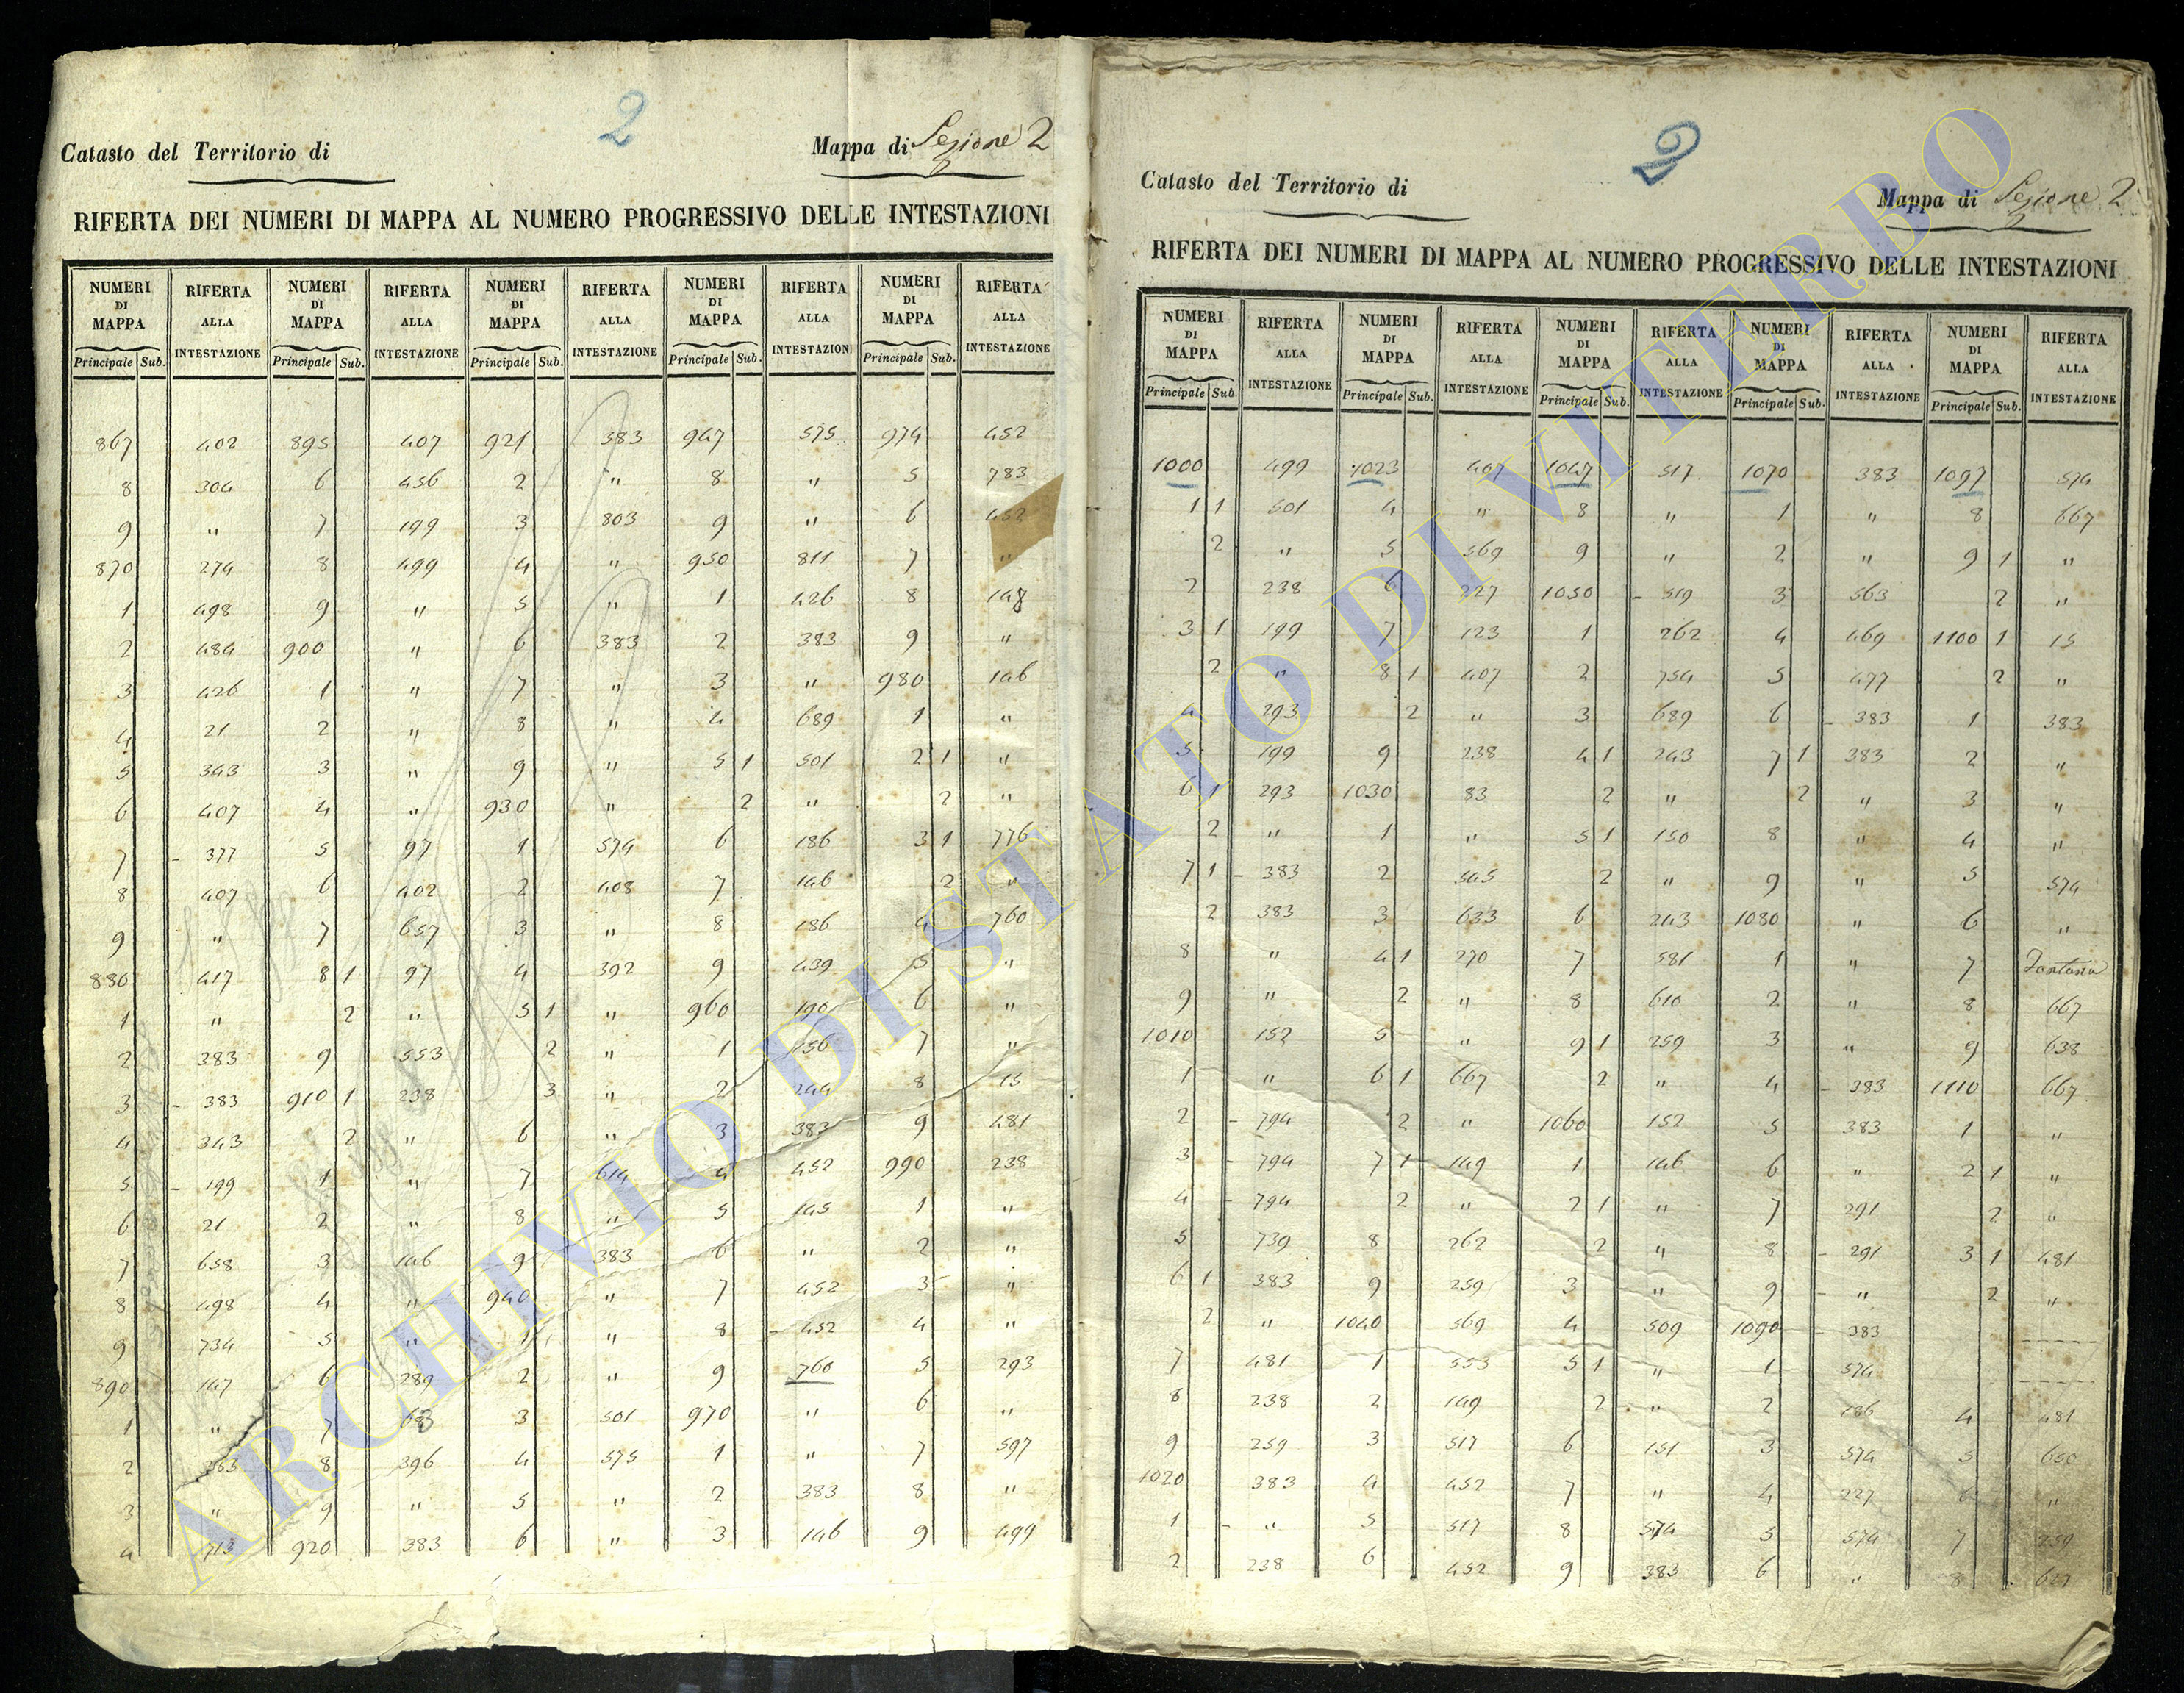 2
Catasto del Territorio di
Mappa di Sezione 2
RIFERTA DEI NUMERI DI MAPPA AL NUMERO PROGRESSIVO DELLE INTESTAZIONI
NUMERI DI MAPPA RIFERTA ALLA INTESTAZIONE NUMERI DI MAPPA RIFERTA ALLA INTESTAZIONE NUMERI DI MAPPA RIFERTA ALLA INTESTAZIONE NUMERI DI MAPPA RIFERTA ALLA INTESTAZIONE NUMERI DI MAPPA RIFERTA ALLA INTESTAZIONE
Principale Sub. Principale Sub. Principale Sub. Principale Sub. Principale Sub.
867 402 895 407 921 383 947 575 974 452
8 304 6 456 2 " 8 " 5 783
9 " 7 199 3 803 9 " 6 452
870 274 8 499 4 " 950 811 7 "
1 498 9 " 5 " 1 426 8 148
2 484 900 " 6 383 2 383 9 "
3 426 1 " 7 " 3 " 980 146
4 21 2 " 8 " 4 689 1 "
5 343 3 " 9 " 5 1 501 2 1 "
6 407 4 " 930 " 2 " 2 "
7 - 377 5 97 1 574 6 186 3 1 776
8 407 6 402 2 408 7 146 2 "
9 " 7 657 3 " 8 186 4 760
880 417 8 1 97 4 392 9 439 5 "
1 " 2 " 5 1 " 960 190 6 "
2 383 9 553 2 " 1 156 7 "
3 - 383 910 1 238 3 " 2 244 8 15
4 343 2 " 6 " 3 383 9 481
5 - 199 1 " 7 614 4 452 990 238
6 21 2 " 8 " 5 145 1 "
7 658 3 146 9 383 6 " 2 "
8 498 4 " 940 " 7 452 3 "
9 734 5 " 1 " 8 - 452 4 "
890 147 6 289 2 " 9 760 5 293
1 " 7 3 501 970 " 6 "
2 383 8 396 4 575 1 " 7 597
3 " 9 " 5 " 2 383 8 "
4 713 920 383 6 " 3 146 9 499
2
Catasto del Territorio di
Mappa di Sezione 2
RIFERTA DEI NUMERI DI MAPPA AL NUMERO PROGRESSIVO DELLE INTESTAZIONI
NUMERI DI MAPPA RIFERTA ALLA INTESTAZIONE NUMERI DI MAPPA RIFERTA ALLA INTESTAZIONE NUMERI DI MAPPA RIFERTA ALLA INTESTAZIONE NUMERI DI MAPPA RIFERTA ALLA INTESTAZIONE NUMERI DI MAPPA RIFERTA ALLA INTESTAZIONE
Principale Sub. Principale Sub. Principale Sub. Principale Sub. Principale Sub.
1000 499 1023 407 1047 517 1070 383 1097 574
1 1 501 4 " 8 " 1 " 8 667
2 " 5 569 9 " 2 " 9 1 "
2 238 6 227 1050 - 519 3 563 2 "
3 1 199 7 123 1 262 4 469 1100 1 15
2 " 8 1 407 2 754 5 477 2 "
4 293 2 " 3 689 6 - 383 1 383
5 199 9 238 4 1 243 7 1 383 2 "
6 1 293 1030 83 2 " 2 " 3 "
2 " 1 " 5 1 150 8 " 4 "
7 1 - 383 2 545 2 " 9 " 5 574
2 383 3 633 6 243 1080 " 6 "
8 " 4 1 270 7 581 1 " 7
9 " 2 " 8 610 2 " 8 667
1010 152 5 " 9 1 259 3 " 9 638
1 " 6 1 667 2 " 4 - 383 1110 667
2 - 794 2 " 1060 152 5 383 1 "
3 - 794 7 1 149 1 146 6 " 2 1 "
4 - 794 2 " 2 1 " 7 291 2 "
5 739 8 262 2 " 8 - 291 3 1 481
6 1 383 9 259 3 " 9 - " 2 "
2 " 1040 569 4 509 1090 - 383
7 481 1 553 5 1 " 1 574
8 238 2 149 2 " 2 186 4 481
9 259 3 517 6 151 3 574 5 650
1020 383 4 452 7 " 4 227 6 "
1 - " 5 517 8 574 5 574 7 259
2 238 6 452 9 383 6 " 8 627
ARCHIVIO DI STATO DI VITERBO